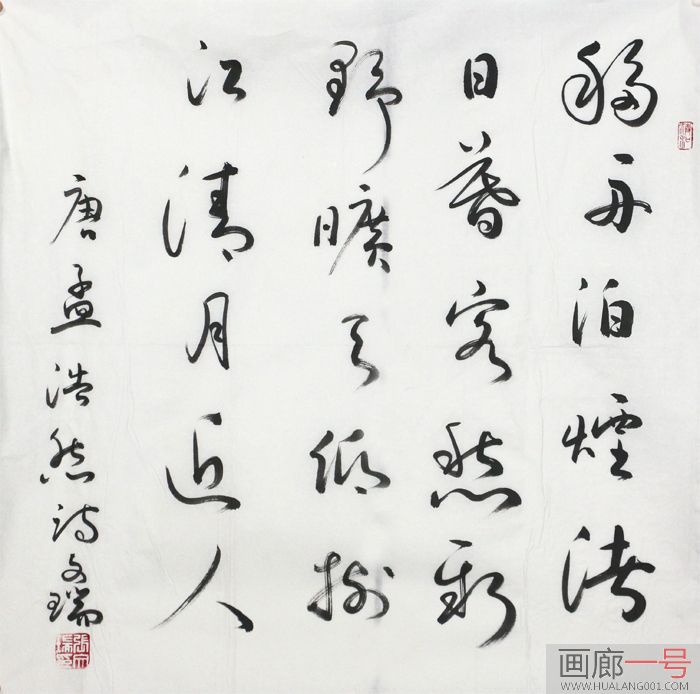 移舟泊煙渚
日暮客愁新
野曠天低樹
江清月近人
唐孟浩然詩文瑞
画廊一号
WWW.HUALANG001.COM